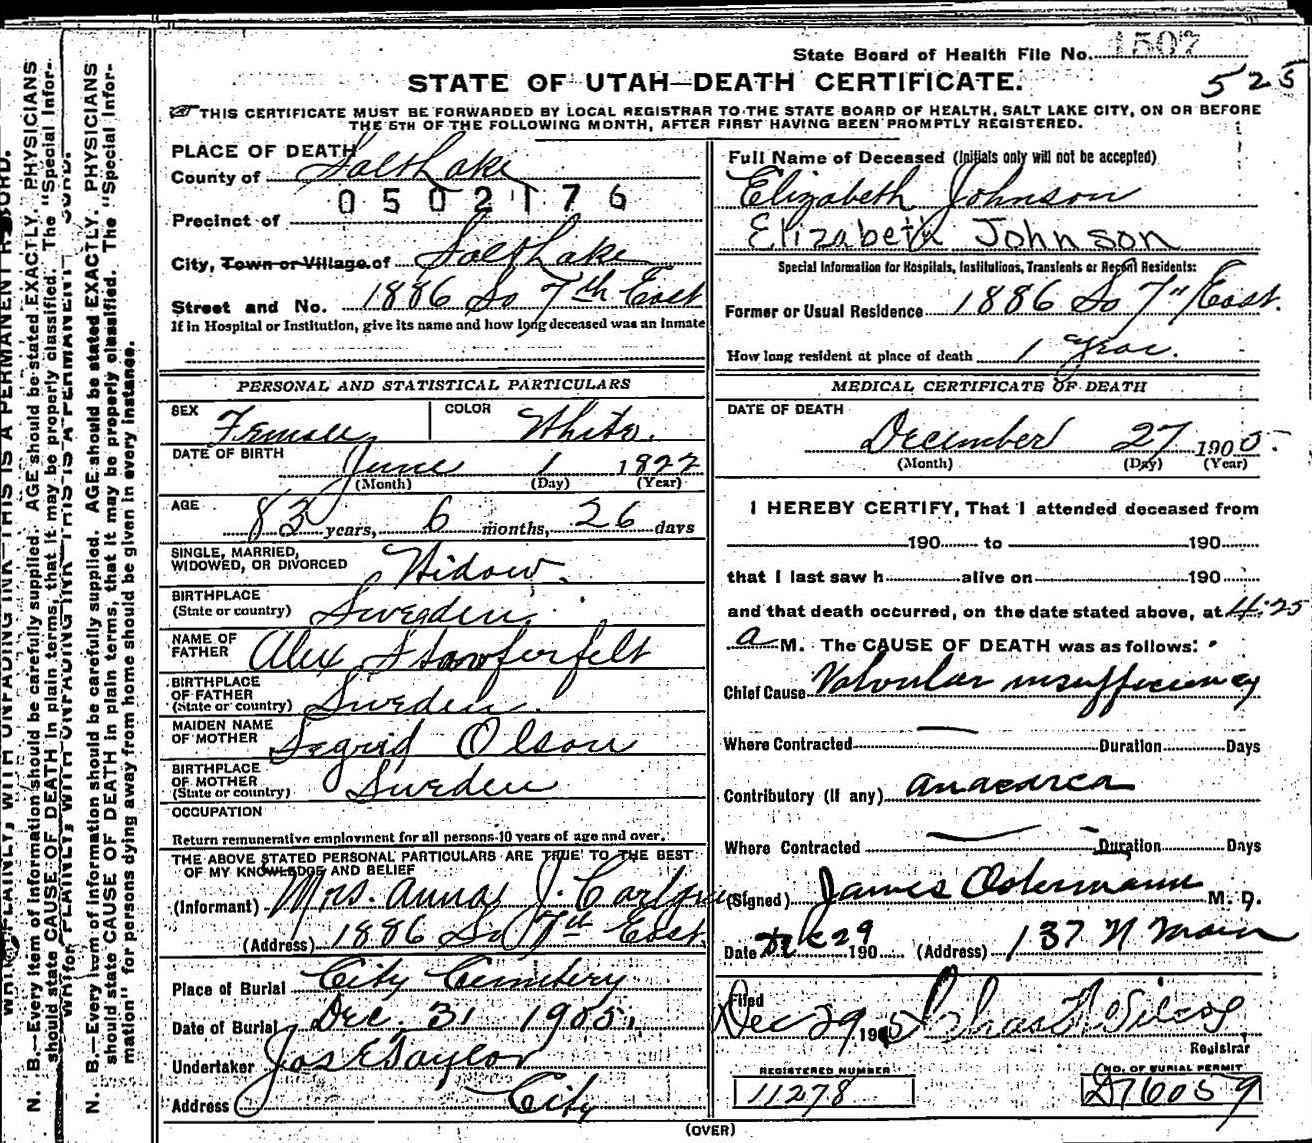 State Board of Health File No. 1507
525
STATE OF UTAH—DEATH CERTIFICATE.
THIS CERTIFICATE MUST BE FORWARDED BY LOCAL REGISTRAR TO THE STATE BOARD OF HEALTH, SALT LAKE CITY, ON OR BEFORE
THE 5TH OF THE FOLLOWING MONTH, AFTER FIRST HAVING BEEN PROMPTLY REGISTERED.
PLACE OF DEATH
County of Salt Lake
0502176
Precinct of
City, Town or Village of Salt Lake
Street and No. 1886 So 7th East
If in Hospital or Institution, give its name and how long deceased was an inmate
PERSONAL AND STATISTICAL PARTICULARS
SEX Female COLOR White.
DATE OF BIRTH June 1 1822
(Month) (Day) (Year)
AGE 83 years, 6 months, 26 days
SINGLE, MARRIED,
WIDOWED, OR DIVORCED Widow.
BIRTHPLACE
(State or country) Sweden.
NAME OF
FATHER Alex
BIRTHPLACE
OF FATHER
(State or country) Sweden.
MAIDEN NAME
OF MOTHER Segrid Olson
BIRTHPLACE
OF MOTHER
(State or country) Sweden
OCCUPATION
Return remunerative employment for all persons 10 years of age and over.
THE ABOVE STATED PERSONAL PARTICULARS ARE TRUE TO THE BEST
OF MY KNOWLEDGE AND BELIEF
(Informant) Mrs. Anna J. Carlson
(Address) 1886 So 7th East
Place of Burial City Cemetery
Date of Burial Dec. 31 1905.
Undertaker Jos E Taylor
Address City
Full Name of Deceased (Initials only will not be accepted)
Elizabeth Johnson
Elizabeth Johnson
Special Information for Hospitals, Institutions, Transients or Recent Residents:
Former or Usual Residence 1886 So 7" East.
How long resident at place of death 1 Year.
MEDICAL CERTIFICATE OF DEATH
DATE OF DEATH
December 27 1905.
(Month) (Day) (Year)
I HEREBY CERTIFY, That I attended deceased from
190 to 190
that I last saw h alive on 190
and that death occurred, on the date stated above, at 4:25
a M. The CAUSE OF DEATH was as follows:
Chief Cause Valvular insufficiency
Where Contracted — Duration Days
Contributory (if any) anasarca
Where Contracted — Duration Days
(Signed) James Ostermann M. D.
Date Dec 29 190 (Address) 137 N Main
Filed
Dec 29 1905
Registrar
REGISTERED NUMBER
11278
NO. OF BURIAL PERMIT
D76059
(OVER)
N. B.—Every item of Information should be carefully supplied. AGE should be stated EXACTLY. PHYSICIANS
should state CAUSE OF DEATH in plain terms, that it may be properly classified. The "Special Infor-
N. B.—Every item of information should be carefully supplied. AGE should be stated EXACTLY. PHYSICIANS
should state CAUSE OF DEATH in plain terms, that it may be properly classified. The "Special Infor-
mation" for persons dying away from home should be given in every instance.